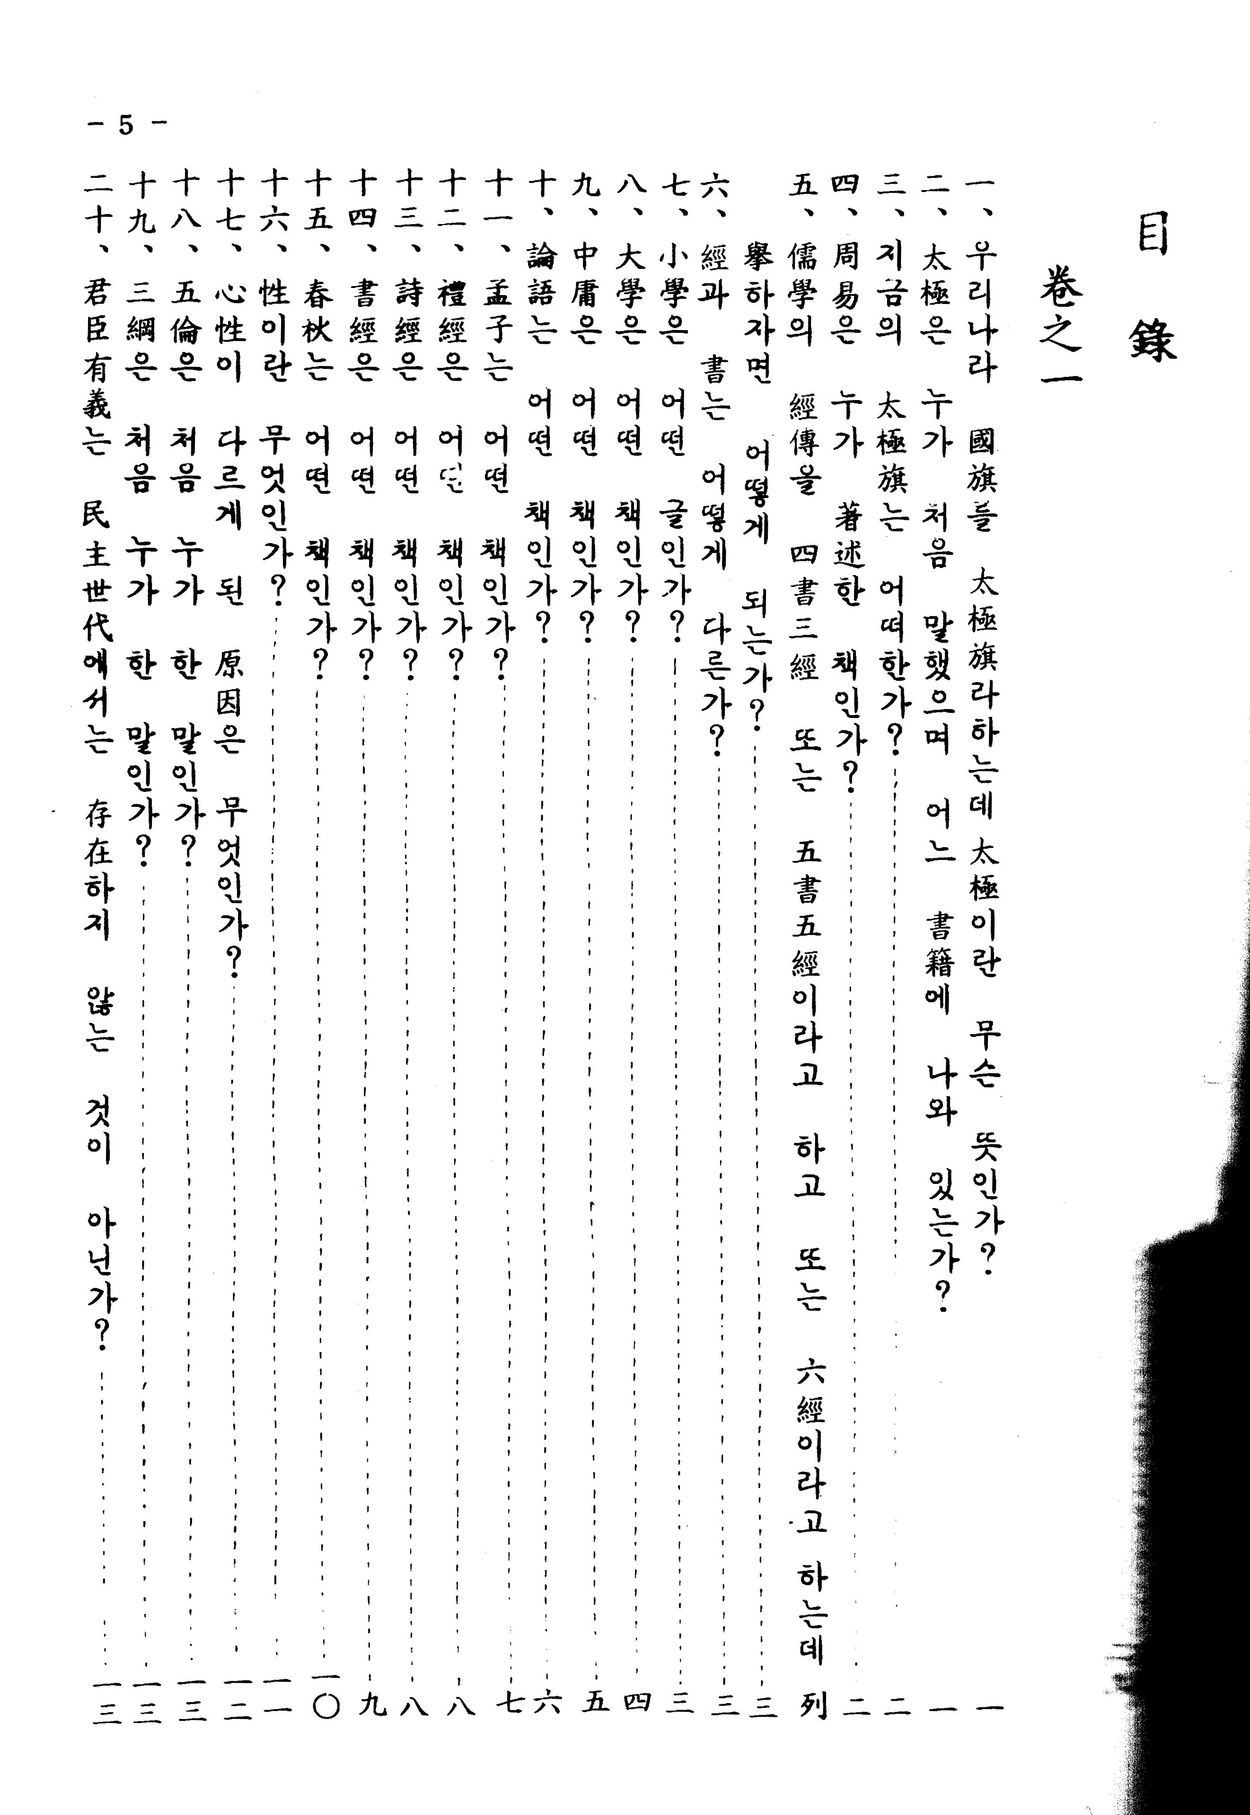 目錄
卷之一
一、우리나라 國旗를 太極旗라하는데 太極이란 무슨 뜻인가? 一
二、太極은 누가 처음 말했으며 어느 書籍에 나와 있는가? 一
三、지금의 太極旗는 어떠한가? 二
四、周易은 누가 著述한 책인가? 二
五、儒學의 經傳을 四書三經 또는 五書五經이라고 하고 또는 六經이라고 하는데 列
擧하자면 어떻게 되는가? 三
六、經과 書는 어떻게 다른가? 三
七、小學은 어떤 글인가? 三
八、大學은 어떤 책인가? 四
九、中庸은 어떤 책인가? 五
十、論語는 어떤 책인가? 六
十一、孟子는 어떤 책인가? 七
十二、禮經은 어떤 책인가? 八
十三、詩經은 어떤 책인가? 八
十四、書經은 어떤 책인가? 九
十五、春秋는 어떤 책인가? 一〇
十六、性이란 무엇인가? 一一
十七、心性이 다르게 된 原因은 무엇인가? 一二
十八、五倫은 처음 누가 한 말인가? 一三
十九、三綱은 처음 누가 한 말인가? 一三
二十、君臣有義는 民主世代에서는 存在하지 않는 것이 아닌가? 一三
- 5 -